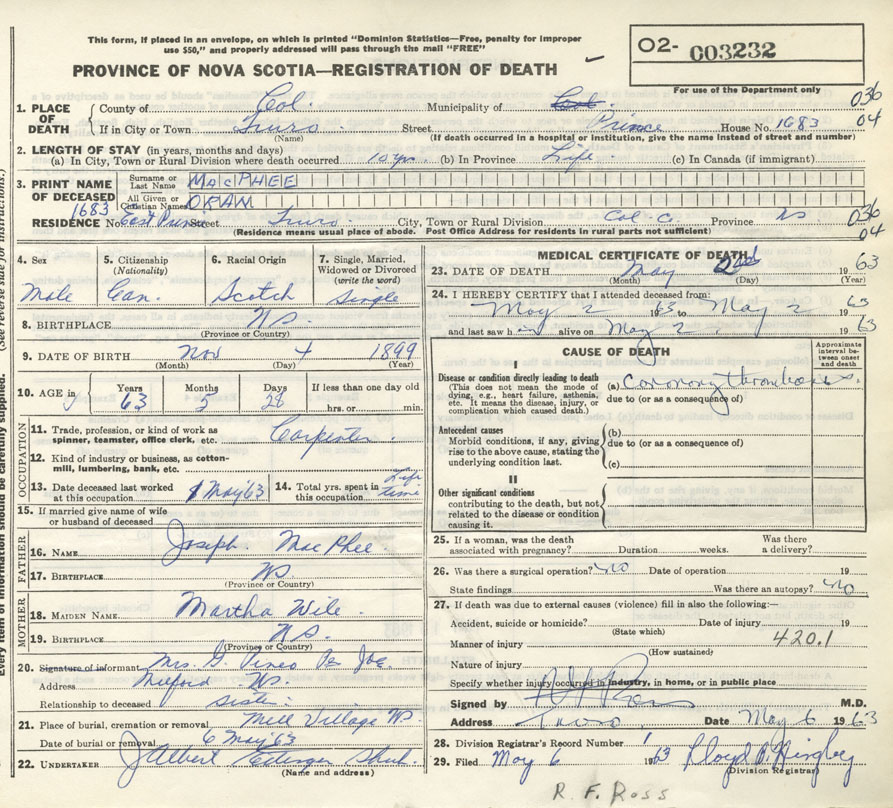 This form, if placed in an envelope, on which is printed "Dominion Statistics—Free, penalty for improper
use $50," and properly addressed will pass through the mail "FREE"
O2- 003232
PROVINCE OF NOVA SCOTIA—REGISTRATION OF DEATH
For use of the Department only
1. PLACE OF DEATH { County of Col. Municipality of 036
If in City or Town Truro Street Prince House No. 1683 04
(Name) (If death occurred in a hospital or institution, give the name instead of street and number)
2. LENGTH OF STAY (in years, months and days)
(a) In City, Town or Rural Division where death occurred 10 yrs. (b) In Province Life. (c) In Canada (if immigrant)
3. PRINT NAME OF DECEASED
Surname or Last Name MACPHEE
All Given or Christian Names ORAN
RESIDENCE No. 1683 East Prince Street Truro City, Town or Rural Division Col. Co. Province NS 036
(Residence means usual place of abode. Post Office Address for residents in rural parts not sufficient) 04
4. Sex Male
5. Citizenship (Nationality) Can.
6. Racial Origin Scotch
7. Single, Married, Widowed or Divorced (write the word) Single
8. BIRTHPLACE NS.
(Province or Country)
9. DATE OF BIRTH Nov 4 1899
(Month) (Day) (Year)
10. AGE in Years 63 Months 5 Days 28 If less than one day old hrs. or min.
OCCUPATION
11. Trade, profession, or kind of work as
spinner, teamster, office clerk, etc. Carpenter.
12. Kind of industry or business, as cotton-
mill, lumbering, bank, etc.
13. Date deceased last worked at this occupation 1 May '63
14. Total yrs. spent in this occupation Life time
15. If married give name of wife
or husband of deceased
FATHER
16. NAME Joseph MacPhee
17. BIRTHPLACE NS
(Province or Country)
MOTHER
18. MAIDEN NAME Martha Wile.
19. BIRTHPLACE NS.
(Province or Country)
20. Signature of informant Mrs. G. Pineo Per Joe
Address Milford NS.
Relationship to deceased sister.
21. Place of burial, cremation or removal Mill Village NS
Date of burial or removal 6 May '63
22. UNDERTAKER J Albert Ettinger Shub.
(Name and address)
MEDICAL CERTIFICATE OF DEATH
23. DATE OF DEATH May 2nd 1963
(Month) (Day) (Year)
24. I HEREBY CERTIFY that I attended deceased from:
May 2 1963 to May 2 1963
and last saw h alive on May 2 1963
CAUSE OF DEATH
Approximate interval between onset and death
I
Disease or condition directly leading to death
(This does not mean the mode of
dying, e.g., heart failure, asthenia,
etc. It means the disease, injury, or
complication which caused death.)
(a) Coronary thrombosis
due to (or as a consequence of)
Antecedent causes
Morbid conditions, if any, giving
rise to the above cause, stating the
underlying condition last.
(b)
due to (or as a consequence of)
(c)
II
Other significant conditions
contributing to the death, but not
related to the disease or condition
causing it.
25. If a woman, was the death
associated with pregnancy? Duration weeks. Was there
a delivery?
26. Was there a surgical operation? No Date of operation 19
State findings Was there an autopsy? No
27. If death was due to external causes (violence) fill in also the following:—
Accident, suicide or homicide? Date of injury 19
(State which)
Manner of injury 420.1
(How sustained)
Nature of injury
Specify whether injury occurred in industry, in home, or in public place
Signed by M.D.
Address Truro Date May 6 1963
28. Division Registrar's Record Number
29. Filed May 6 1963
(Division Registrar)
R. F. Ross
(See reverse side for instructions.)
Every item of information should be carefully supplied.